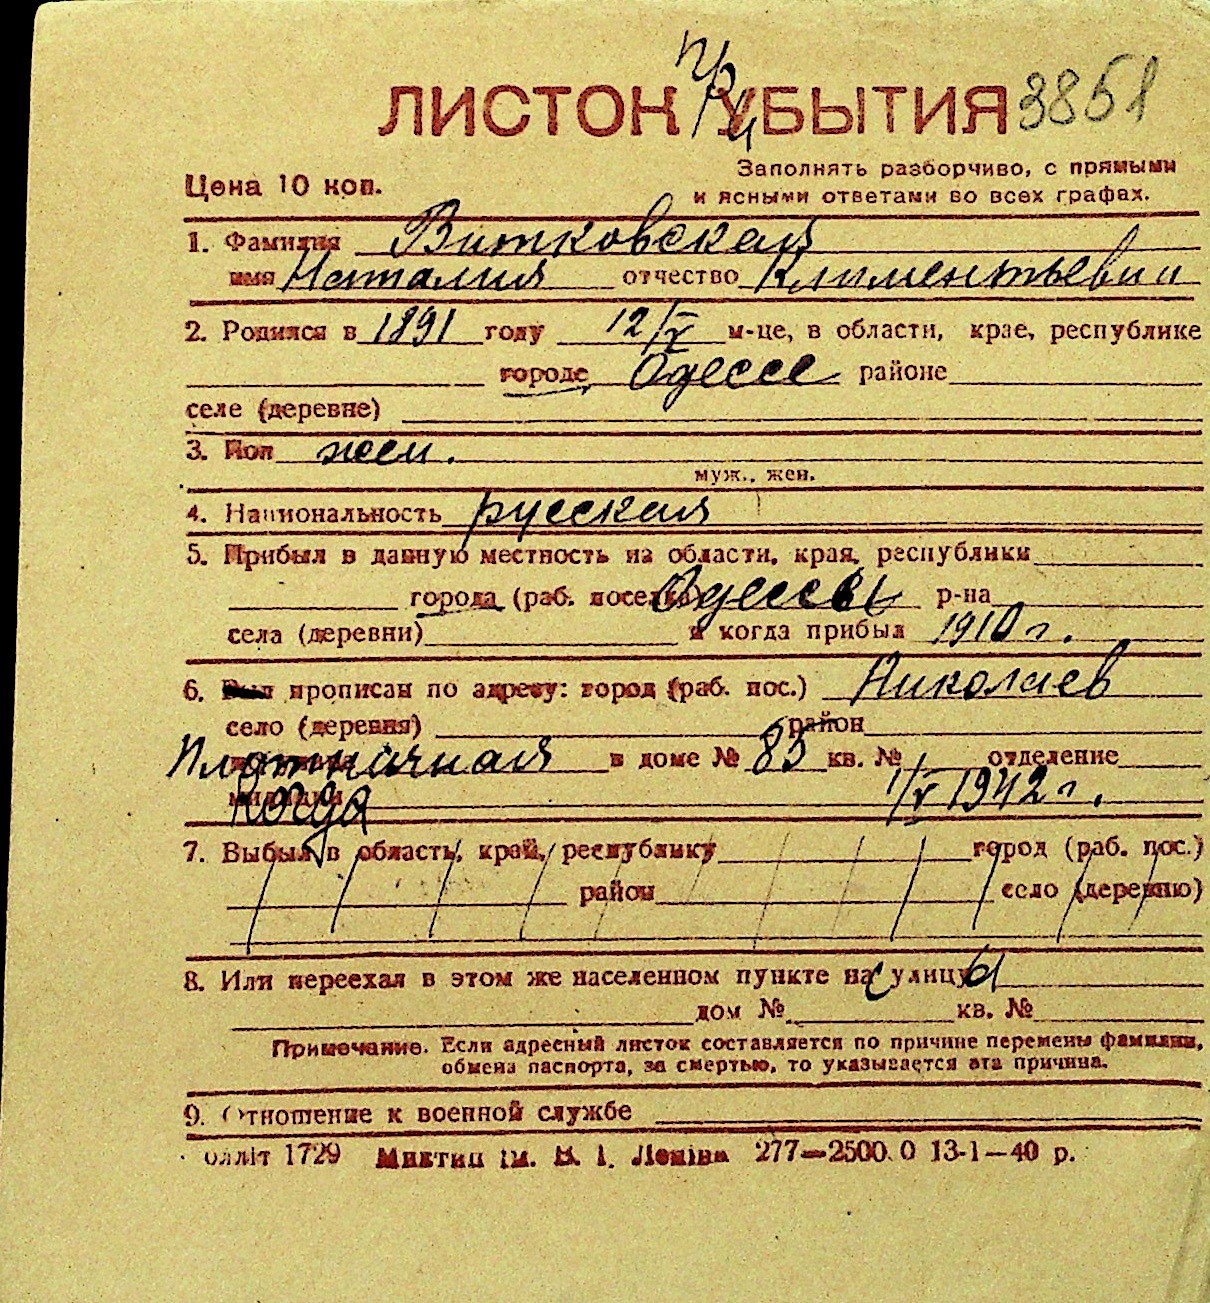 ЛИСТОК УБЫТИЯ 3851
При
Цена 10 коп.
Заполнять разборчиво, с прямыми
и ясными ответами во всех графах.
1. Фамилия Витковская
имя Наталия отчество Климентьевн
2. Родился в 1891 году 12/V м-це, в области, крае, республике
городе Одессе районе
селе (деревне)
3. Пол жен.
муж., жен.
4. Национальность русская
5. Прибыл в данную местность из области, края, республики
города (раб. поселка) Одессы р-на
села (деревни) и когда прибыл 1910 г.
6. Был прописан по адресу: город (раб. пос.) Николаев
село (деревня) район
Плотничная в доме № 85 кв. № 1 отделение
милиции Когда 1/V 1942 г.
7. Выбыл в область, край, республику город (раб. пос.)
район село (деревню)
8. Или переехал в этом же населенном пункте на с улицу ы
дом № кв. №
Примечание. Если адресный листок составляется по причине перемены фамилии,
обмена паспорта, за смертью, то указывается эта причина.
9. Отношение к военной службе
олліт 1729 Миктип ім. В. І. Леніна 277—2500.0 13-1—40 р.